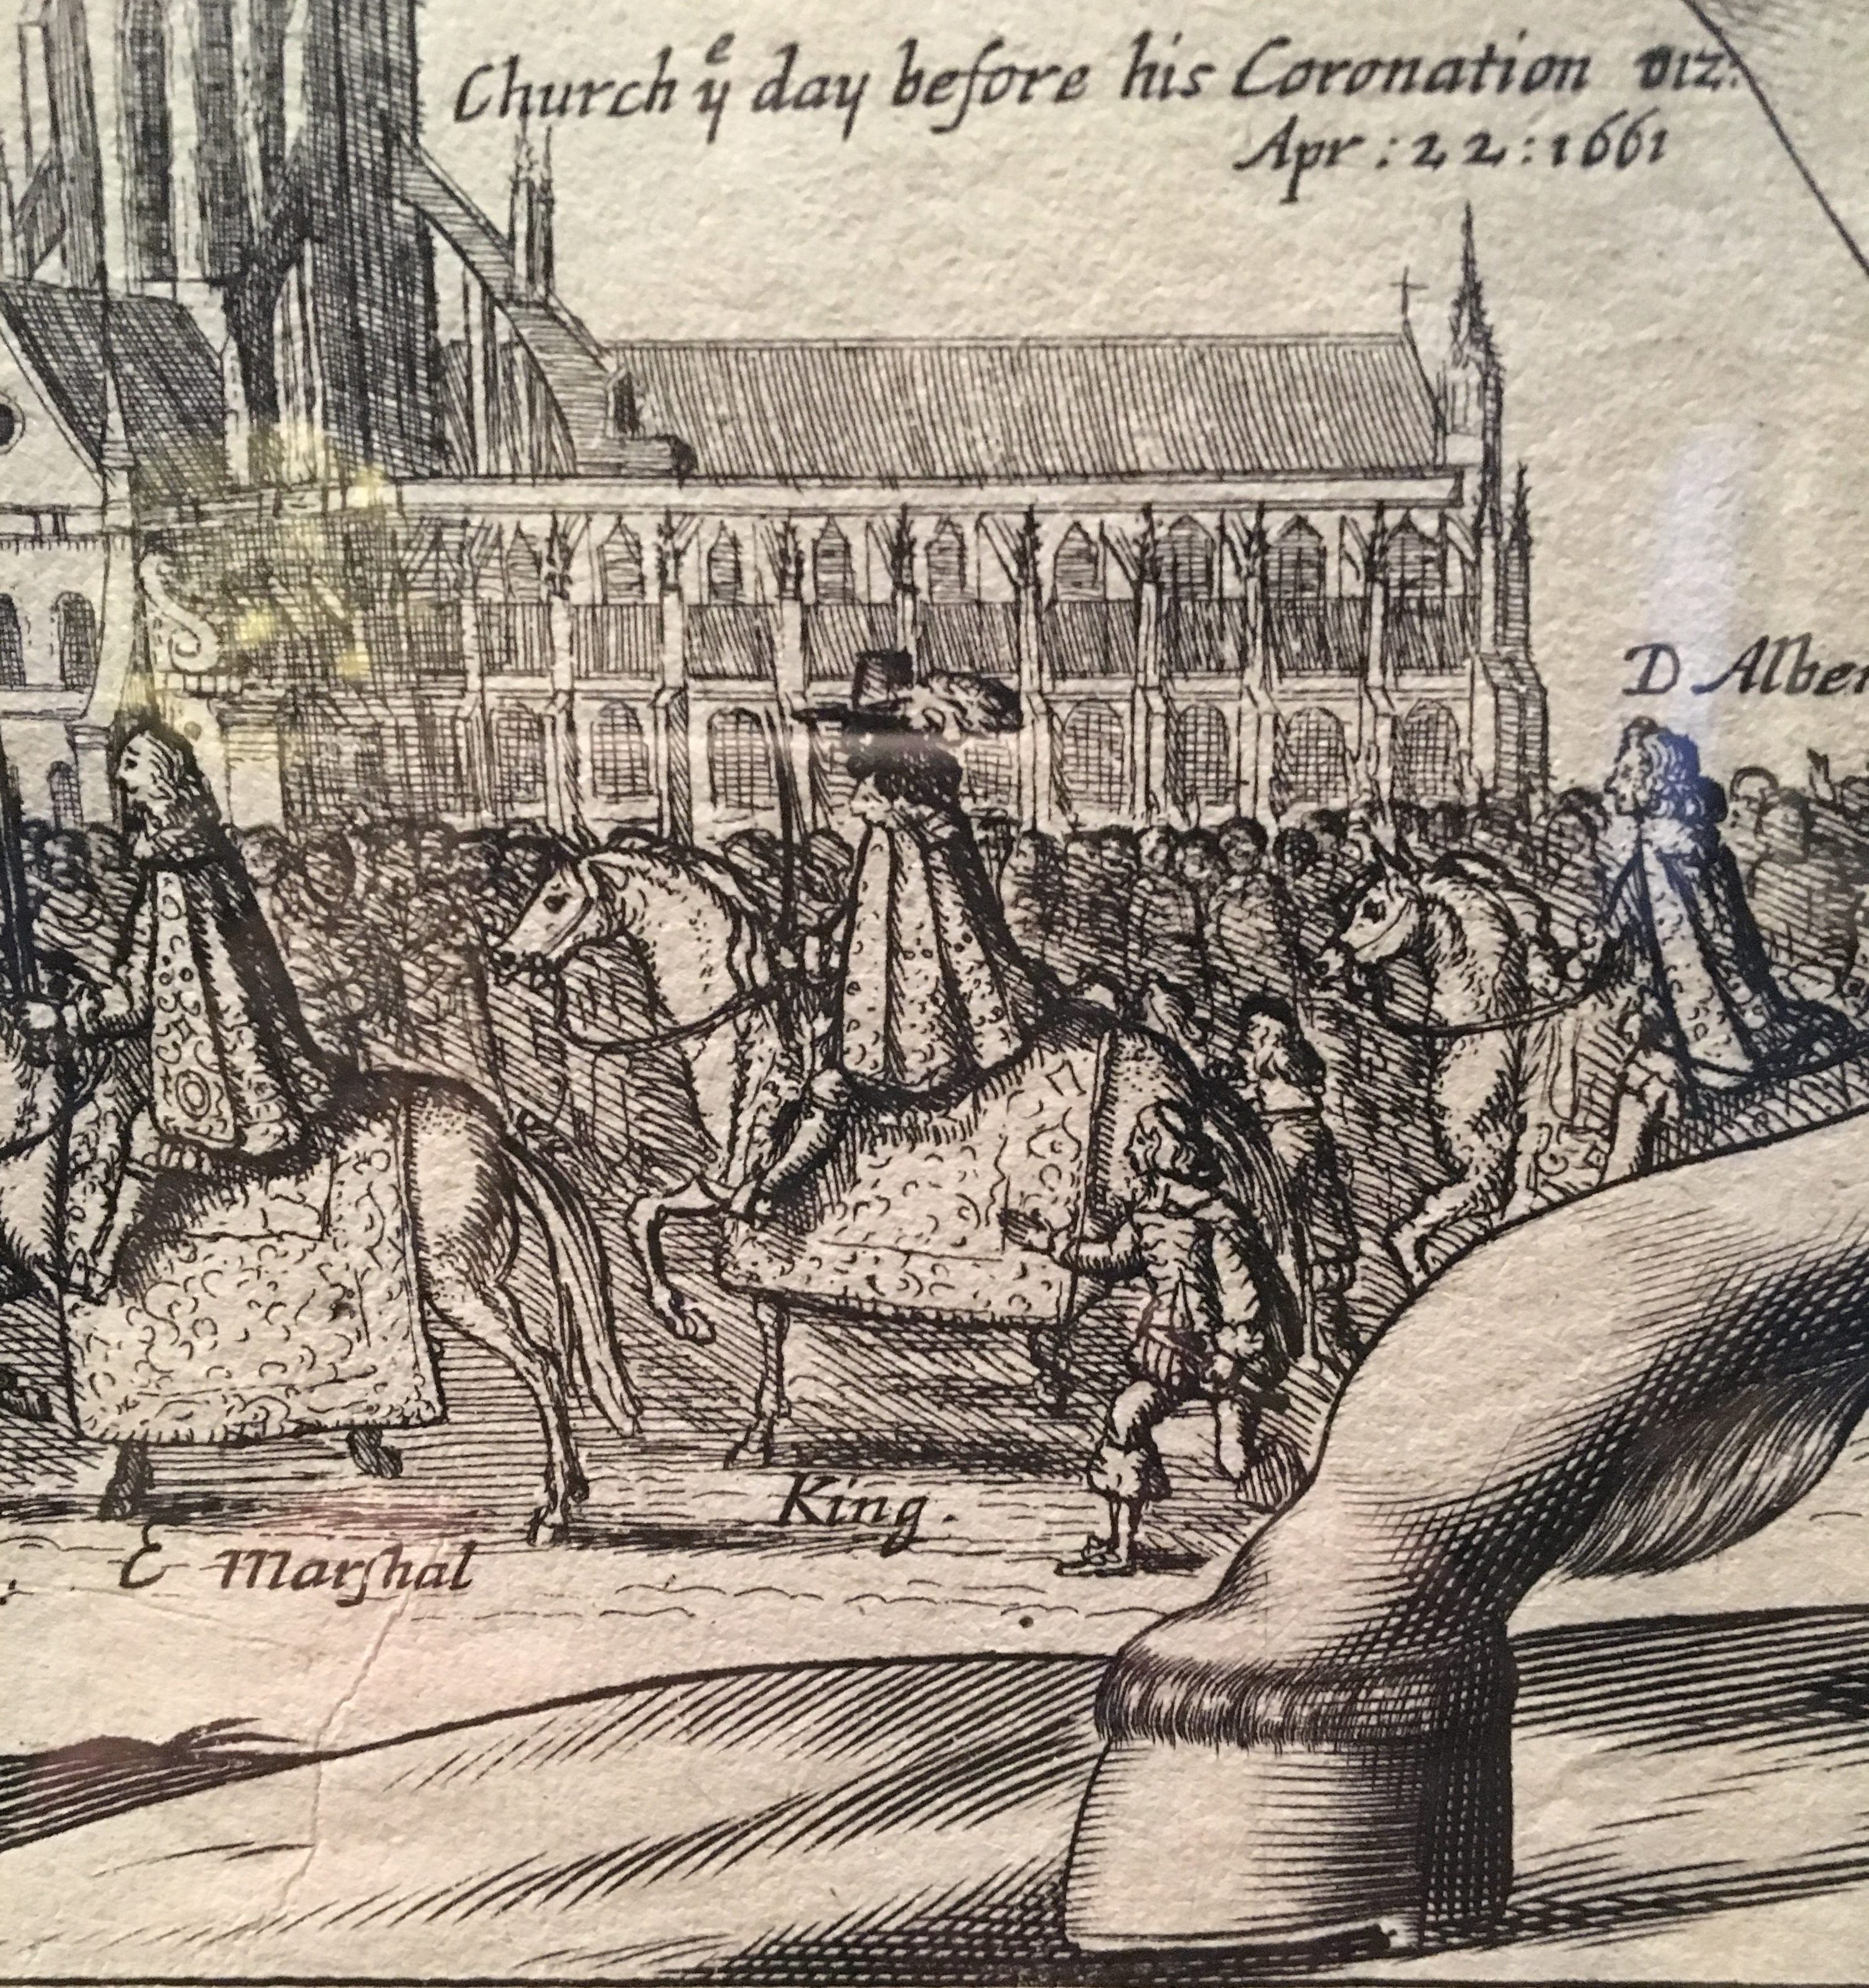 Church yͤ day before his Coronation viz:
Apr : 22 : 1661
D Albe
King.
E Marſhal